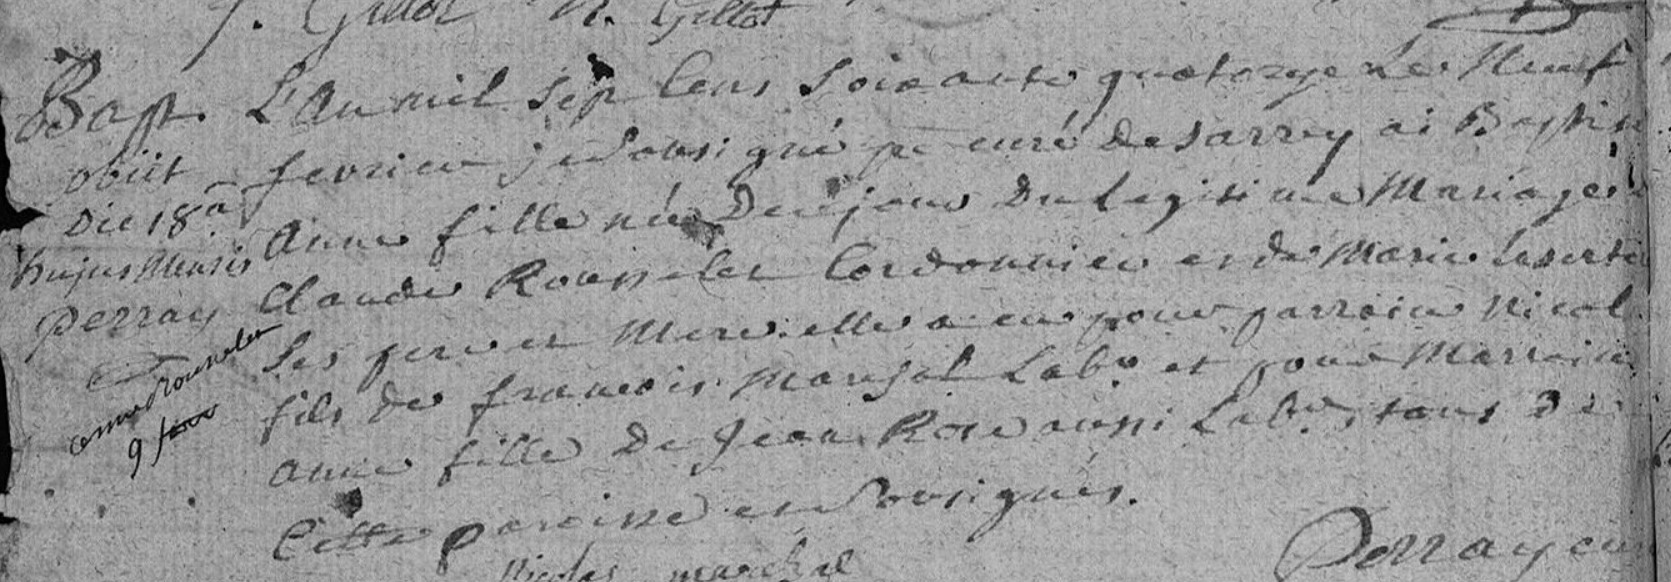 J. Gillot N. Gillot
Bapt.
obiit
Die 18a
hujus Mensis
Perray
anne Rousselet
9
L'An mil Sep Cens Soixante quatorze Le Neuf
fevrier je Soussigné pr curé de Sarrey ai Baptisé
Anne fille née de ce jour du Legitime Mariage
Claude Rousselet Cordonnier et de Marie
Ses per et Mere. elle a eu pour parrain Nicol
fils de francois Marchal Labr et pour Marraine
anne fille de Jean Rose aussi Labr, tous de
Cette paroisse et Soussignés.
Nicolas marchal
Perray curé